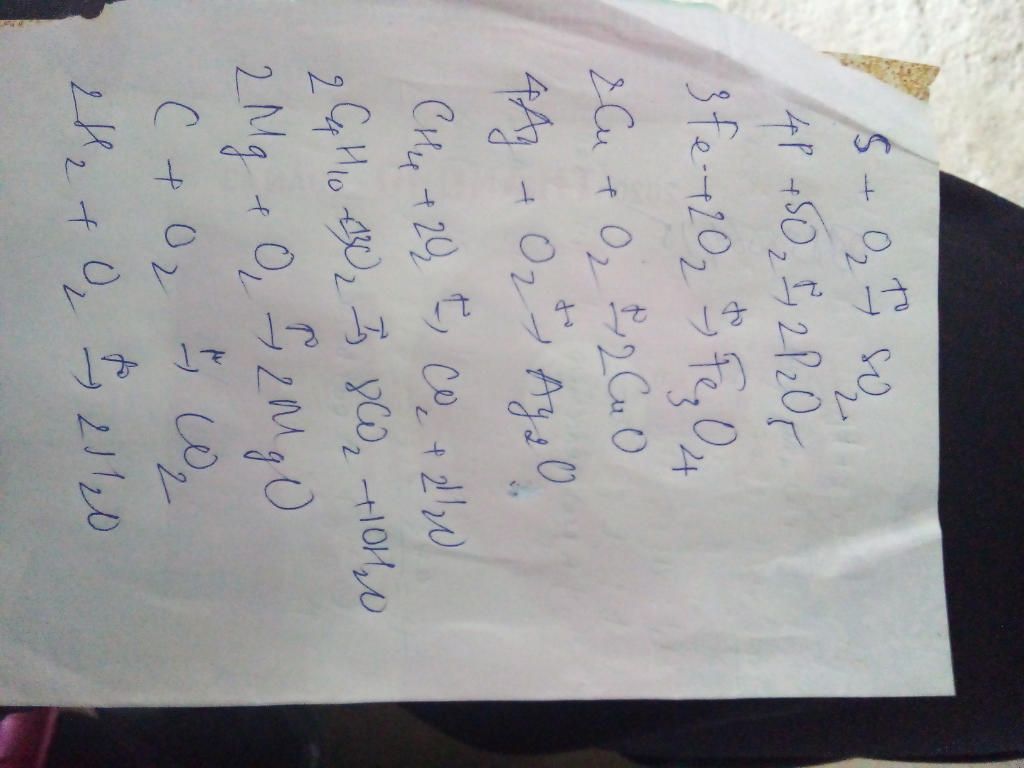 S + O₂ t°→ SO₂
4P + 5O₂ t°→ 2P₂O₅
3Fe + 2O₂ t°→ Fe₃O₄
2Cu + O₂ t°→ 2CuO
4Ag + O₂ t°→ Ag₂O
CH₄ + 2O₂ t°→ CO₂ + 2H₂O
2C₄H₁₀ + 13O₂ t°→ 8CO₂ + 10H₂O
2Mg + O₂ t°→ 2MgO
C + O₂ t°→ CO₂
2H₂ + O₂ t°→ 2H₂O